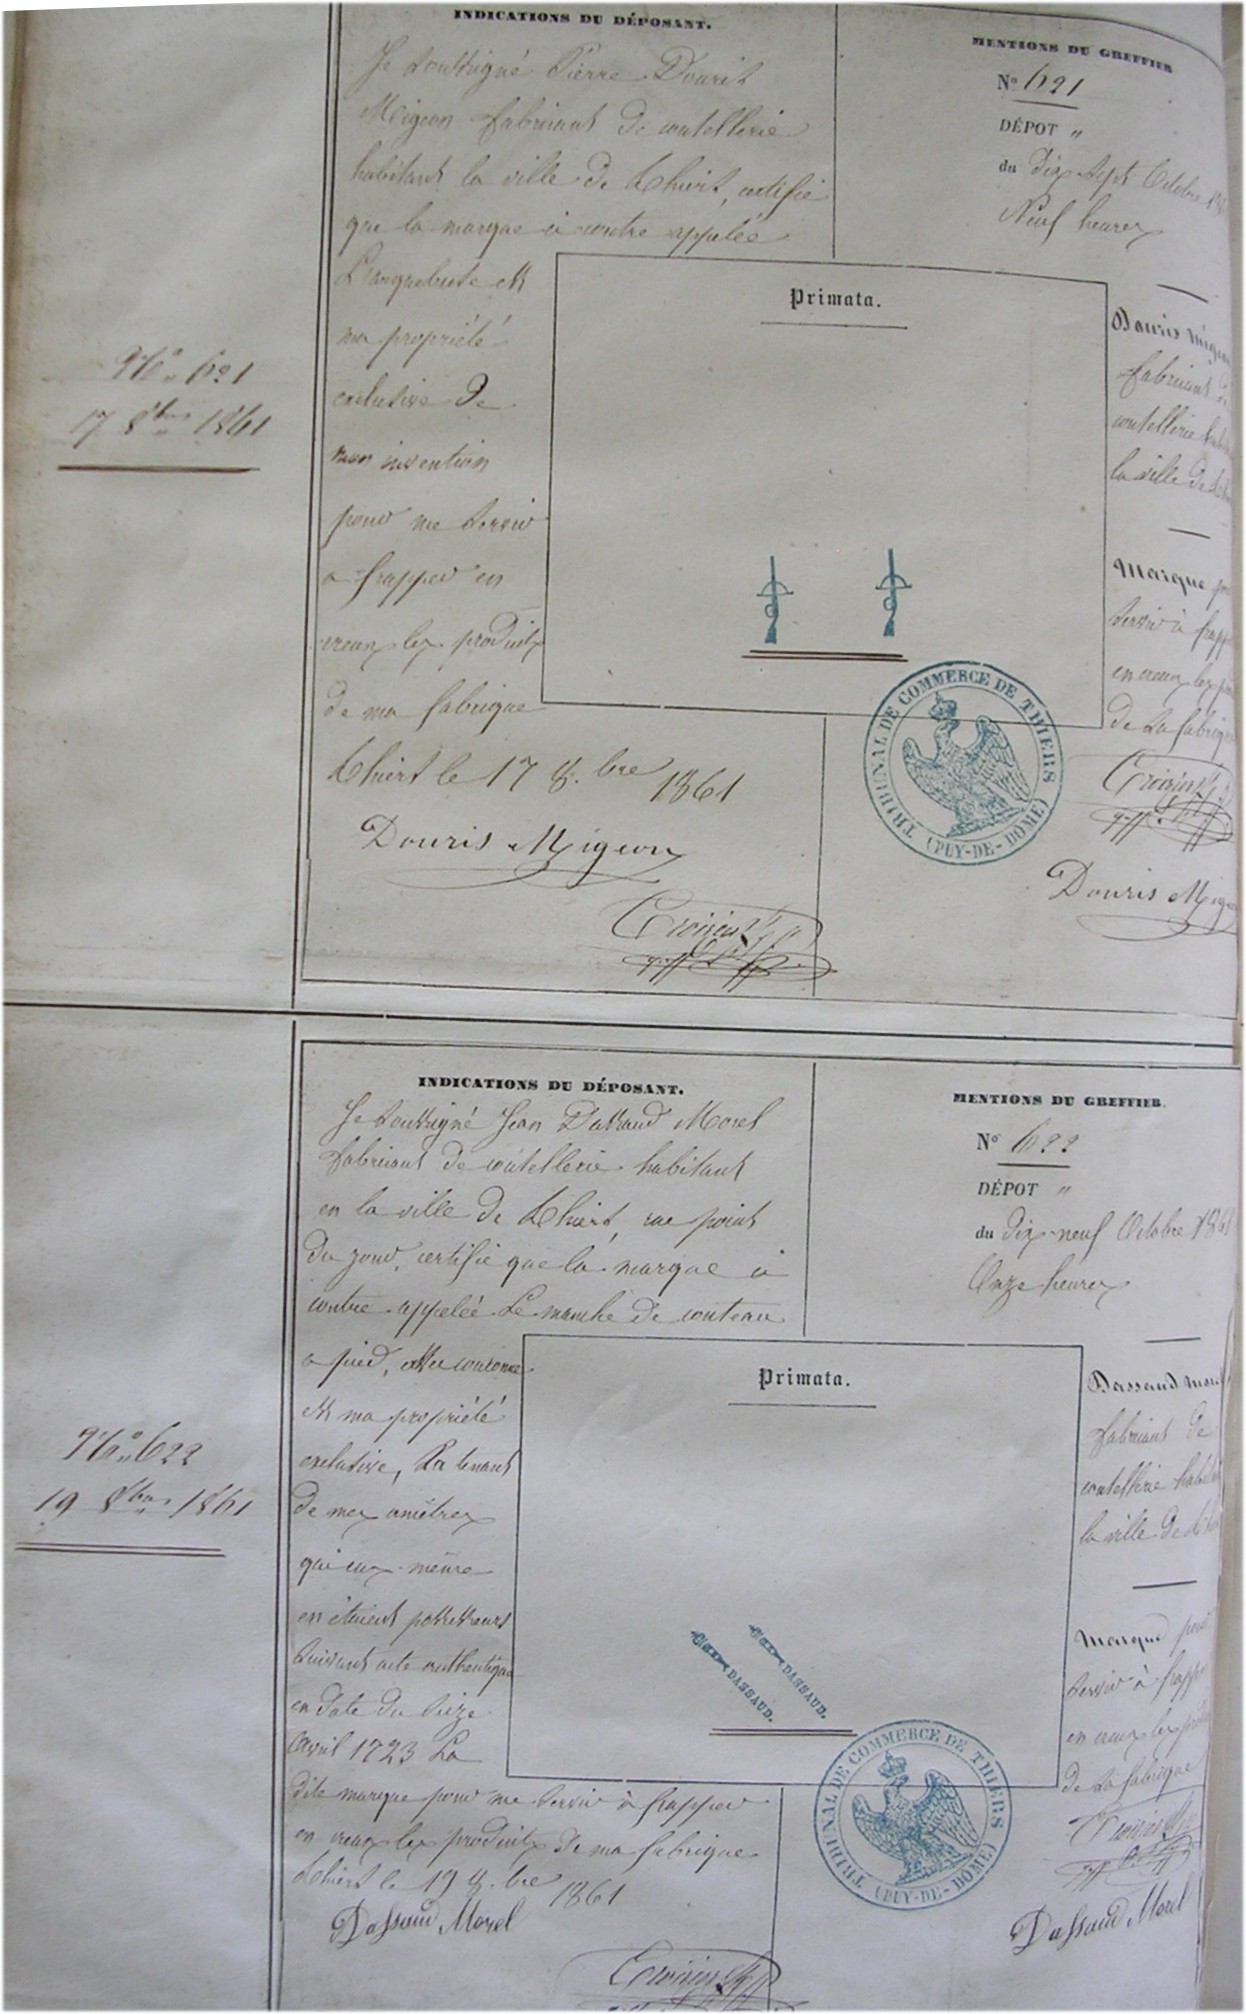 N° 621
17 8bre 1861
INDICATIONS DU DÉPOSANT.
Je soussigné Pierre Douris
Migeon fabricant de coutellerie
habitant la ville de Thiers, certifie
que la marque ci contre appelée
L'arquebuse est
ma propriété
exclusive de
mon invention
pour me servir
a frapper en
creux les produits
de ma fabrique
Thiers le 17 8.bre 1861
Douris Migeon
Primata.
TRIBUNAL DE COMMERCE DE THIERS
(PUY-DE-DOME)
MENTIONS DU GREFFIER
N° 621
DÉPOT "
du dix sept Octobre
Neuf heures
Douris Migeon
fabricant
coutellerie
la ville de
Marque
servir à
en creux les
de sa fabrique
Douris
N° 622
19 8bre 1861
INDICATIONS DU DÉPOSANT.
Je soussigné Jean Dassaud Morel
fabricant de coutellerie habitant
en la ville de Thiers, rue point
du jour, certifie que la marque ci
contre appelée Le manche de couteau
a pied, couronne
est ma propriété
exclusive, La tenant
de mes ancêtres
qui eux-même
en étaient possesseurs
suivant acte authentique
en date du seize
Avril 1723 La
dite marque pour me servir à frapper
en creux les produits de ma fabrique
Thiers le 19 8.bre 1861
Dassaud Morel
Primata.
DASSAUD.
DASSAUD.
TRIBUNAL DE COMMERCE DE THIERS
(PUY-DE-DOME)
MENTIONS DU GREFFIER.
N° 622
DÉPOT "
du dix-neuf Octobre 1861
Onze heures
Dassaud Morel
fabricant de
coutellerie
la ville de
Marque pour
servir à
en creux les
de sa fabrique
Dassaud Morel